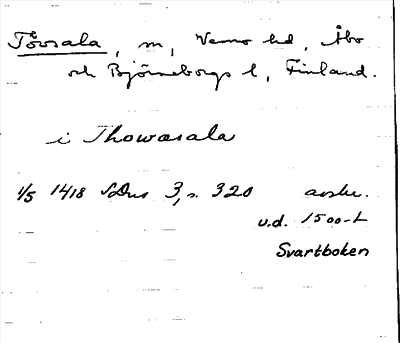 Tövsala, sn, Vemo hd, Åbo
och Björneborgs l, Finland.
i Thowasala
1/5 1418 SDns 3, s. 320 avskr.
u.d. 1500-t
Svartboken